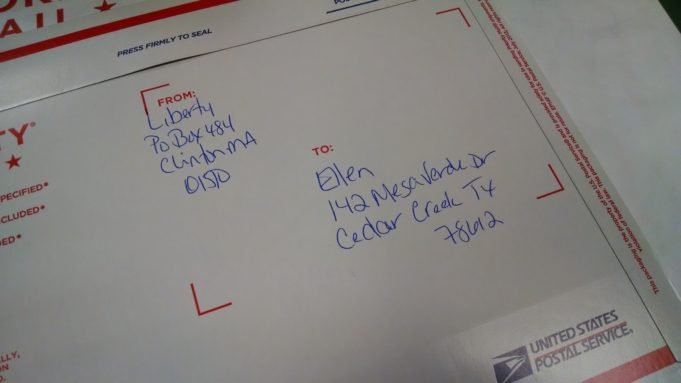 AIL
PRESS FIRMLY TO SEAL
FROM:
Liberty
PO Box 484
Clinton MA
01510
TY®
TO:
Ellen
142 Mesa Verde Dr
Cedar Creek TX
78612
SPECIFIED*
CLUDED*
ED*
UNITED STATES
POSTAL SERVICE®
ALLY,
ON
ED.